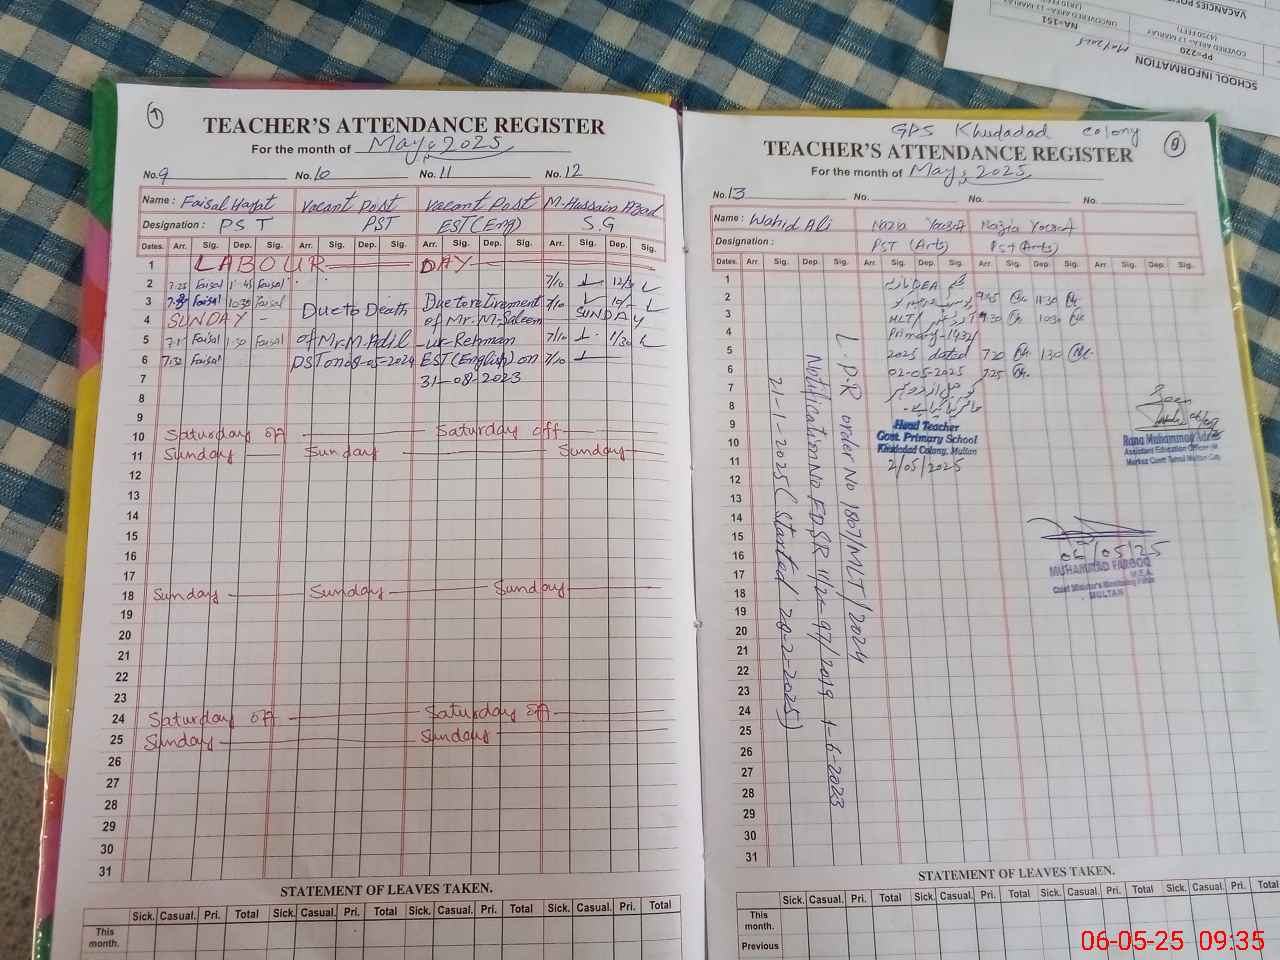 SCHOOL INFORMATION
PP=220
NA=151
COVERED AREA=
UNCOVERED AREA=
May 2025
7
TEACHER'S ATTENDANCE REGISTER
For the month of May, 2025
No. 9 No. 10 No. 11 No. 12
Name : Faisal Vacant Post Vacant Post M. Hussain Azad
Designation : PST PST EST (Eng) S.G
Dates. Arr. Sig. Dep. Sig. Arr. Sig. Dep. Sig. Arr. Sig. Dep. Sig. Arr. Sig. Dep. Sig.
1 LABOUR DAY
2 7.25 Faisal 11.45 Faisal 7/10
3 Faisal 10:30 Faisal Due to Death Due to retirement 7/10
4 SUNDAY of Mr. M. Saleem SUNDAY
5 Faisal 1:30 Faisal of Mr. M. Adil ur Rehman 7/10 1/30
6 7:30 Faisal PST on 08-05-2024 EST (English) on 7/10
7 31-08-2023
8
9
10 Saturday off Saturday off
11 Sunday Sunday Sunday
12
13
14
15
16
17
18 Sunday Sunday Sunday
19
20
21
22
23
24 Saturday off Saturday off
25 Sunday Sunday
26
27
28
29
30
31
STATEMENT OF LEAVES TAKEN.
Sick. Casual. Pri. Total Sick. Casual. Pri. Total Sick. Casual. Pri. Total Sick. Casual. Pri. Total
This month.
GPS Khudadad colony
TEACHER'S ATTENDANCE REGISTER
For the month of May, 2025
No. 13 No. No. No.
Name : Wahid Ali Nazia Yousaf Nazia Yousaf
Designation : PST (Arts) PST (Arts)
Dates. Arr. Sig. Dep. Sig. Arr. Sig. Dep. Sig. Arr. Sig. Dep. Sig. Arr. Sig. Dep. Sig.
1 DEA
2 9:45 11:30
3 MLT/ 7:30 10:30
4 Primary-1432/
5 2025 dated 7:20 1:30
6 02-05-2025 7:25
7
8
9 Head Teacher
10 Govt. Primary School
Khudadad Colony, Multan
11 2/05/2025
12
13
14
15
16
17
18
19
20
21
22
23
24
25
26
27
28
29
30
31
L.P.R order No 1807/MLT/2024
Notification No. ED, SR 11/2-97/2019 1-6-2023
21-1-2025 (Started 28-2-2025)
Rana Muhammad
Assistant Education Officer
06/05/25
MUHAMMAD FAROOQ
M.E.A.
Chief Minister's Monitoring Force
MULTAN
STATEMENT OF LEAVES TAKEN.
Sick. Casual. Pri. Total Sick. Casual. Pri. Total Sick. Casual. Pri. Total Sick. Casual. Pri. Total
This month.
Previous
06-05-25 09:35